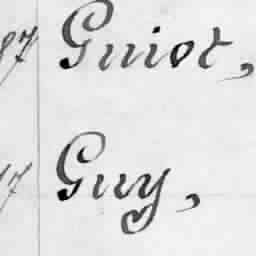 87 Guiot,
17 Guy,